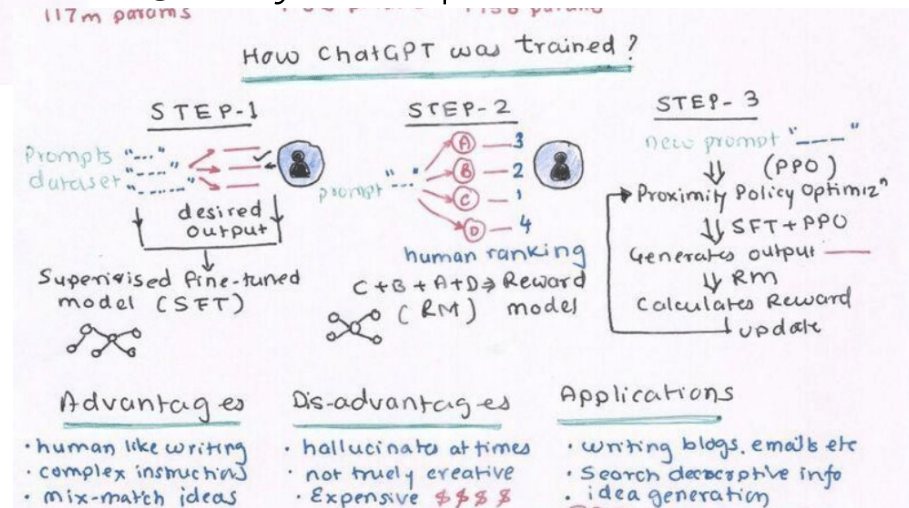 117m params
How ChatGPT was trained?
STEP-1
Prompts "---"
dataset "-----"
"------"
desired
output
Supervised fine-tuned
model (SFT)
STEP-2
prompt "--"
A — 3
B — 2
C — 1
D — 4
human ranking
C+B+A+D → Reward
(RM) model
STEP-3
new prompt "-----"
(PPO)
Proximity Policy Optimiz"
SFT+PPO
Generates output —
RM
Calculates Reward
update
Advantages
• human like writing
• complex instructions
• mix-match ideas
Dis-advantages
• hallucinate at times
• not truely creative
• Expensive $$$$
Applications
• writing blogs, emails etc
• Search descriptive info
• idea generation